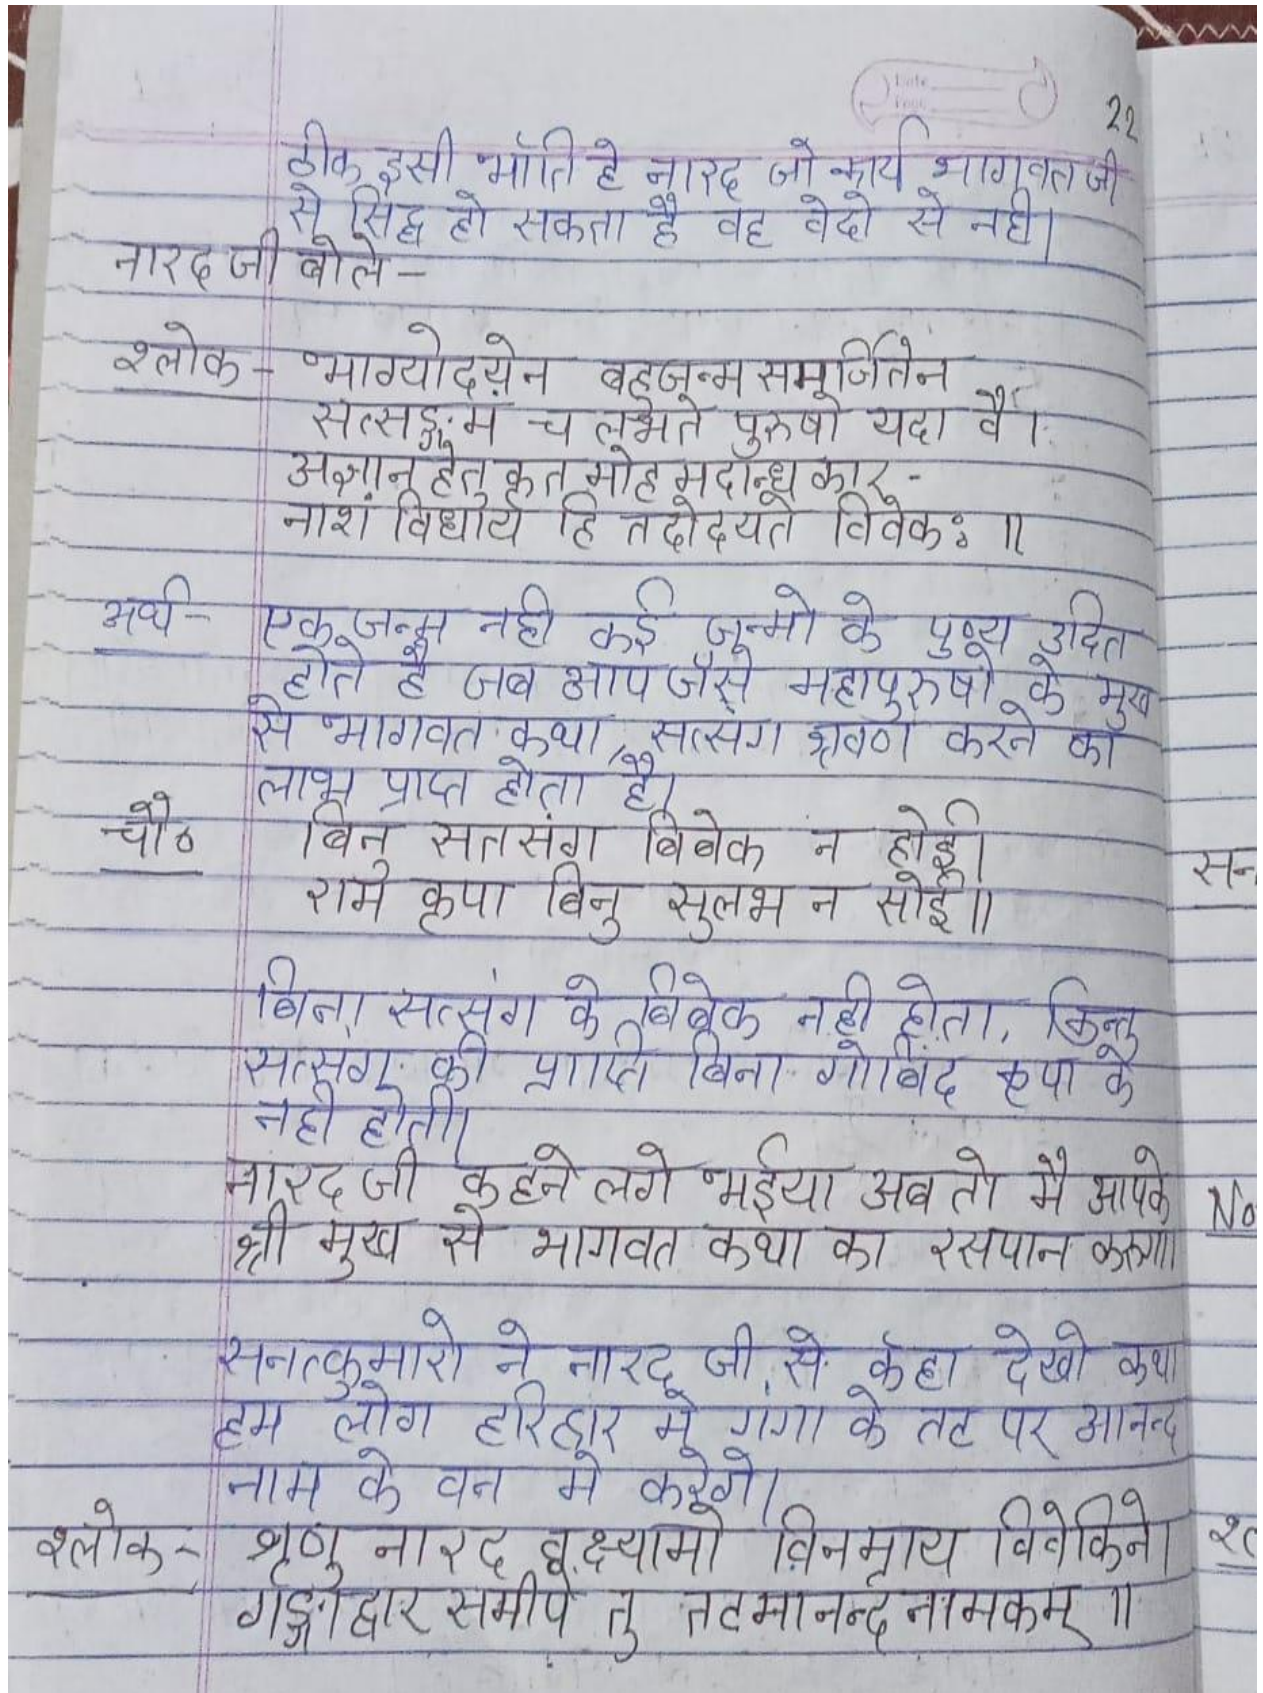 22
ठीक इसी भाँति हे नारद जो कार्य भागवत जी
से सिद्ध हो सकता है वह वेदो से नही।
नारद जी बोले -
श्लोक - भाग्योदयेन बहुजन्म समर्जितेन
सत्सङ्गम च लभते पुरुषो यदा वै।
अज्ञान हेतु कृत मोह मदान्ध कार -
नाशं विधाय हि तदोदयते विवेकः ॥
अर्थ - एक जन्म नही कई जन्मो के पुण्य उदित
होते है जब आप जैसे महापुरुषो के मुख
से भागवत कथा, सत्संग श्रवण करने का
लाभ प्राप्त होता है।
चौ० बिनु सतसंग बिबेक न होई।
राम कृपा बिनु सुलभ न सोई॥
बिना सत्संग के बिबेक नही होता, किन्तु
सत्संग की प्राप्ति बिना गोबिंद कृपा के
नही होती।
नारद जी कहने लगे भईया अब तो मै आपके
श्री मुख से भागवत कथा का रसपान करुगा।
सनत्कुमारो ने नारद जी से कहा देखो कथा
हम लोग हरिद्वार मे गंगा के तट पर आनन्द
नाम के वन मे करेगे।
श्लोक - श्रृणु नारद वक्ष्यामो विनम्राय विवेकिने।
गङ्गाद्वार समीपे तु तटमानन्द नामकम् ॥
सन
No